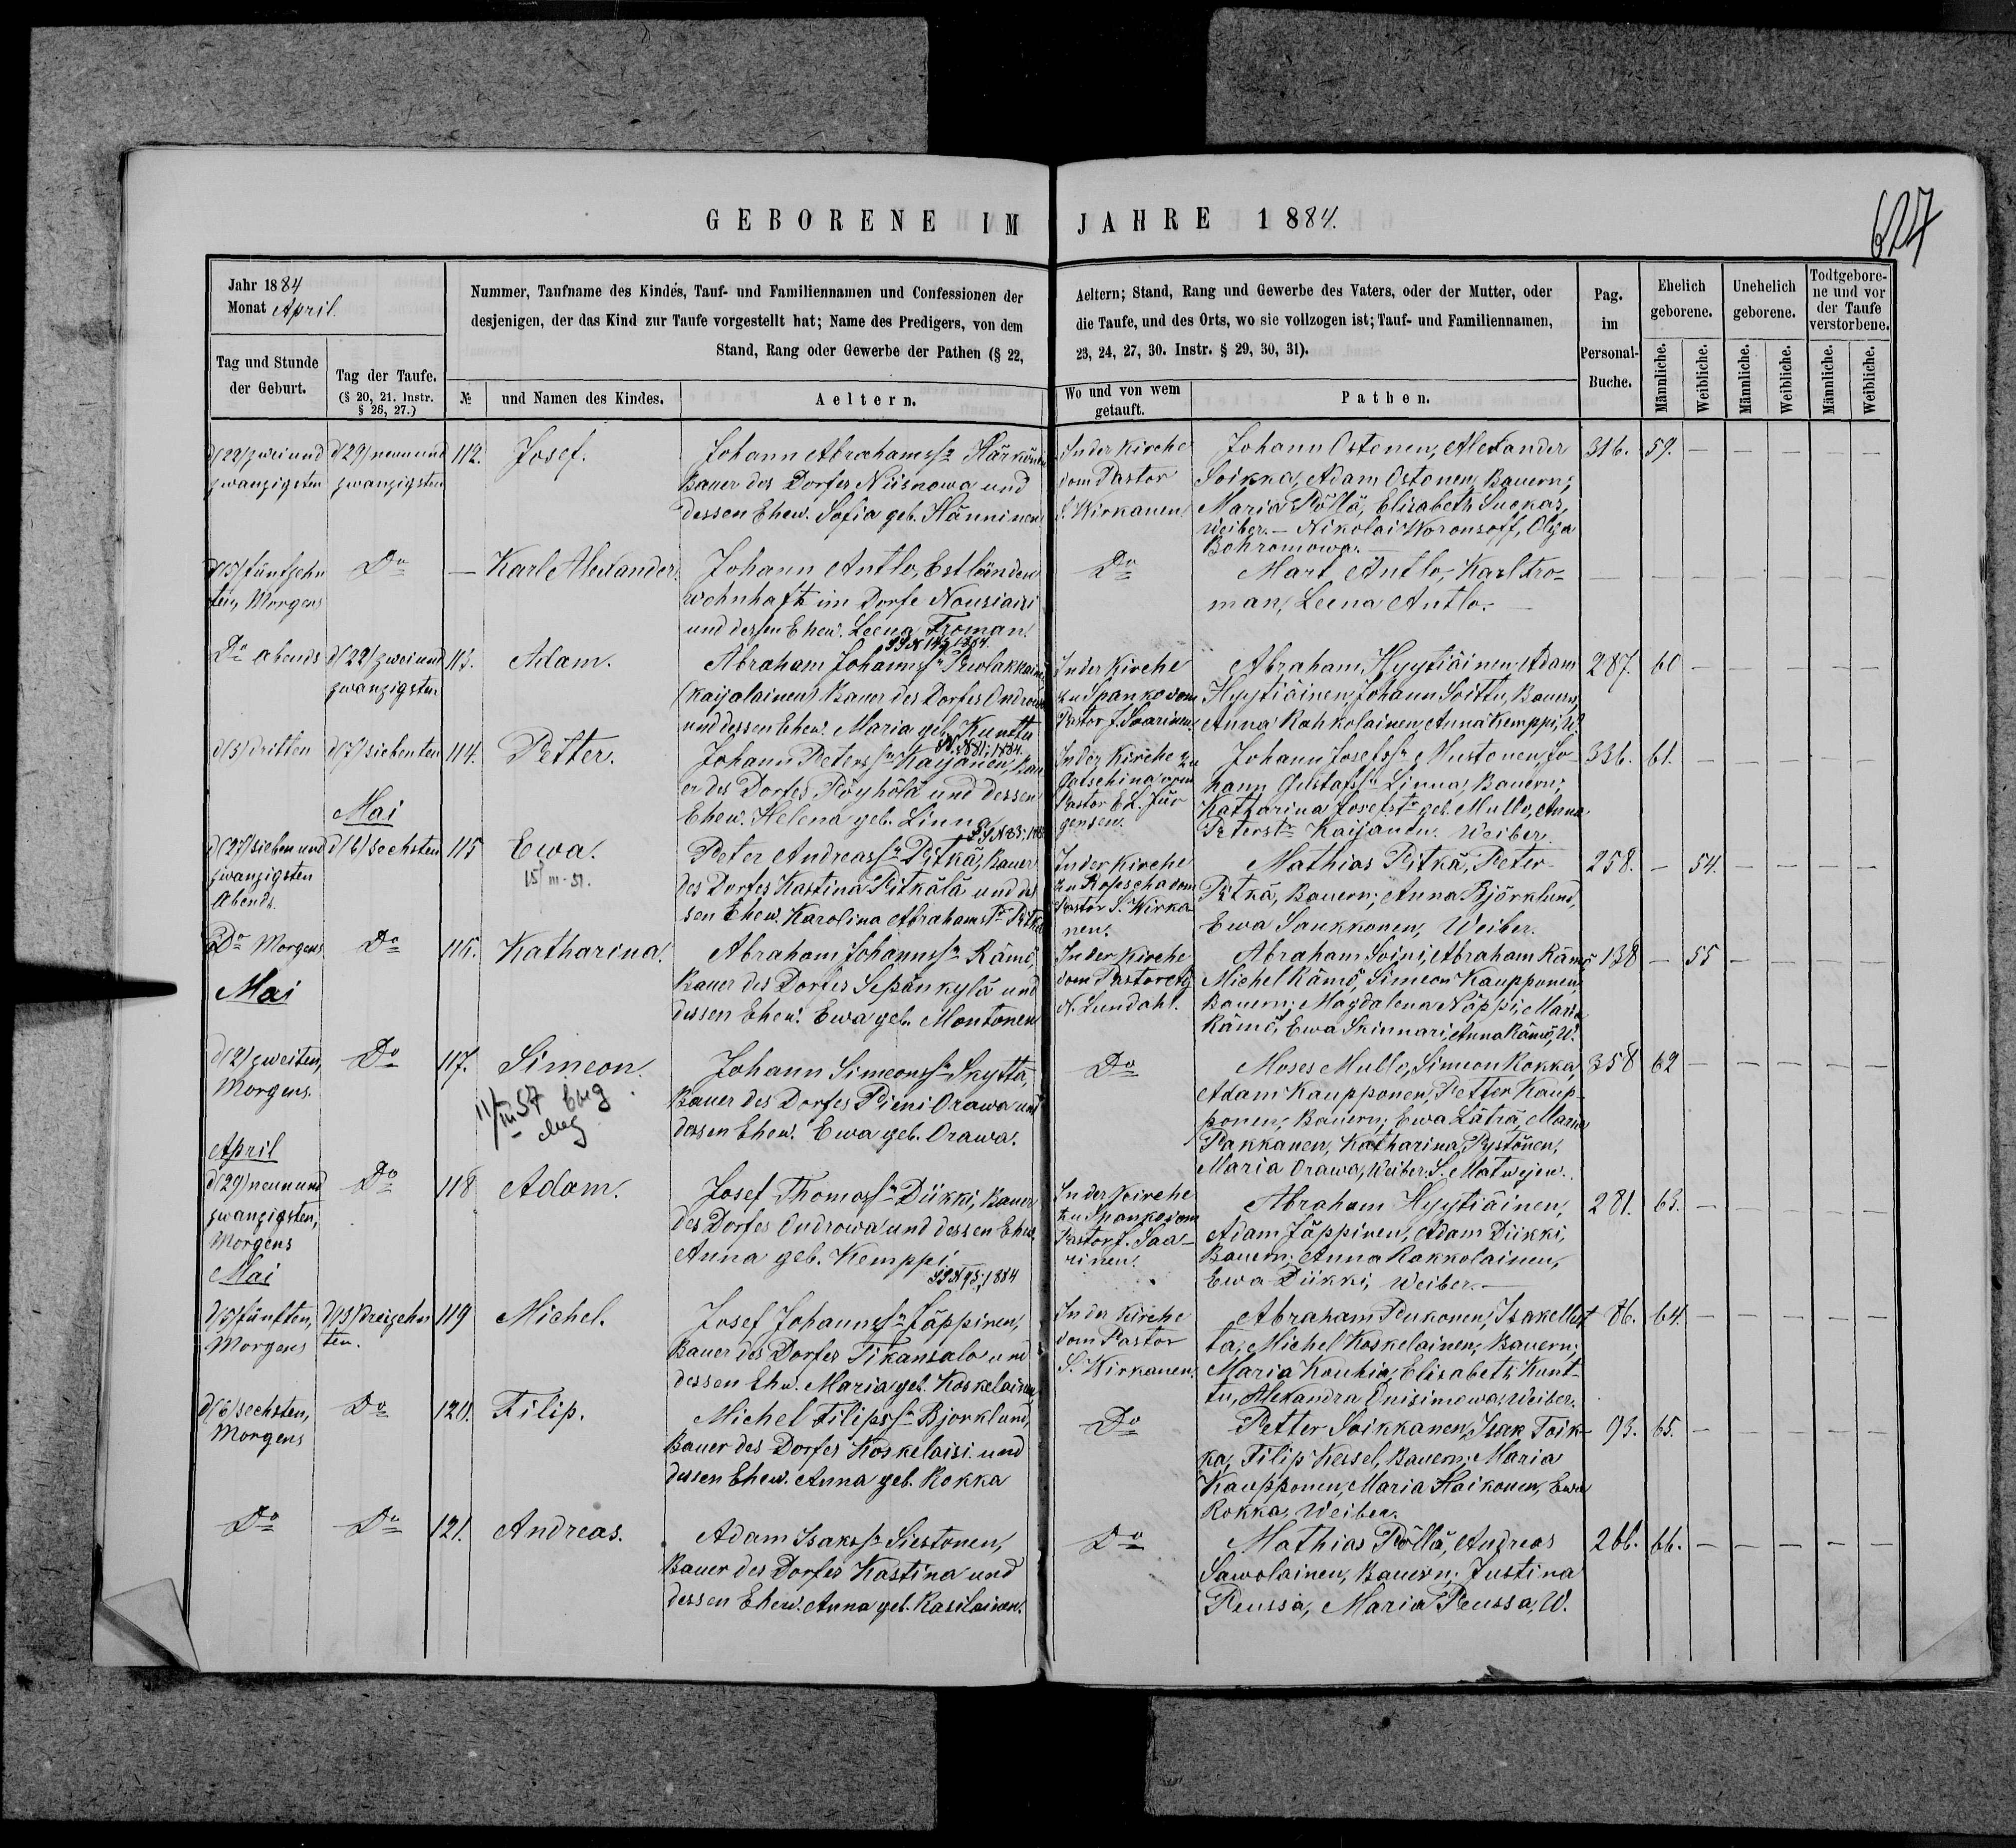 GEBORENE IM JAHRE 1884.
627
Jahr 1884
Monat April.
Nummer, Taufname des Kindes, Tauf- und Familiennamen und Confessionen der
desjenigen, der das Kind zur Taufe vorgestellt hat; Name des Predigers, von dem
Stand, Rang oder Gewerbe der Pathen (§ 22,
Aeltern; Stand, Rang und Gewerbe des Vaters, oder der Mutter, oder
die Taufe, und des Orts, wo sie vollzogen ist; Tauf- und Familiennamen,
23, 24, 27, 30. Instr. § 29, 30, 31).
Pag.
im
Personal-
Buche.
Ehelich
geborene.
Unehelich
geborene.
Todtgebore-
ne und vor
der Taufe
verstorbene.
Tag und Stunde
der Geburt.
Tag der Taufe.
(§ 20, 21. Instr.
§ 26, 27.)
№
und Namen des Kindes.
Aeltern.
Wo und von wem
getauft.
Pathen.
Männliche.
Weibliche.
Männliche.
Weibliche.
Männliche.
Weibliche.
d(22) zwei und
zwanzigsten
d(29) neun und
zwanzigsten
112.
Josef.
Johann Abrahamssn Härkönen
Bauer des Dorfes Niisnowa und
dessen Ehew. Sofia geb. Hänninen
In der Kirche
vom Pastor
S. Wirkanen
Johann Ostonen, Alexander
Soikka, Adam Ostonen, Bauern;
Maria Pöllä, Elisabeth Suokas,
Weiber. – Nikolai Woronsoff, Olga
Bohromowa.
316. 59. — — — — —
d(15) fünfzehn
ten, Morgens
Do
—
Karl Alexander.
Johann Antlo, Estländer
wohnhaft im Dorfe Nousiaisi
und dessen Ehew. Leena Froman.
Do
Mart Antlo, Karl Fro-
man, Leena Antlo. —
— — — — — — —
Do abends
d(22) zwei und
zwanzigsten
113.
Adam.
Abraham Johannssn
(Kaijalainen) Bauer des Dorfes Androwa
und dessen Ehew. Maria geb. Kunttu
In der Kirche
zu Spanko vom
Pastor J. Saarinen.
Abraham Hyytiäinen, Adam
Hyytiäinen, Johann Soittu, Bauern;
Anna Rahkolainen, Anna Kemppi, W.
287. 60 — — — — —
d(3) dritten
d(7) siebenten
114.
Petter.
Johann Peterssn Kaijanen, Bau
er des Dorfes Pöyhölä und dessen
Ehew. Helena geb. Linna
In der Kirche zu
Gatschina vom
Pastor E. L. Jür
gensen.
Johann Josefssn Mustonen, Jo-
hann Gustafssn Linna, Bauern;
Katharina Josefstr geb. Mullo, Anna
Peterstr Kaijanen. Weiber.
336. 61. — — — — —
Mai
d(27) sieben und
zwanzigsten
Abends.
d(6) sechsten
115
Ewa.
15/III-51.
Peter Andreassn Pitkä, Bauer
des Dorfes Kastina Pitkälä und des
sen Ehew. Karolina Abrahamstr Pitkä
In der Kirche
zu Ropscha vom
Pastor S. Wirka
nen.
Mathias Pitkä, Peter
Pitkä, Bauern; Anna Björklund,
Ewa Saukkonen, Weiber.
258. — 54. — — — —
Do Morgens
Do
116.
Katharina.
Abraham Johannssn Rämö,
Bauer des Dorfes Sepänkylä und
dessen Ehew. Ewa geb. Montonen
In der Kirche
vom Pastor
N. Lundahl.
Abraham Soini, Abraham Rämö
Michel Rämö, Simeon Kaupponen,
Bauern; Magdalena Näppi, Maria
Rämö, Ewa Skinnari, Anna Rämö, W.
138 — 55 — — — —
Mai
d(2) zweiten,
Morgens.
Do
117.
Simeon.
Johann Simeonssn Skyttä,
Bauer des Dorfes Pieni Orawa und
dessen Ehew. Ewa geb. Orawa.
Do
Moses Mullo, Simeon Rokka
Adam Kaupponen, Petter Kaup-
ponen, Bauern; Ewa Läträ, Maria
Pakkanen, Katharina Pystönen,
Maria Orawa, Weiber. S. Matwejew.
358 62 — — — — —
April
d(29) neun und
zwanzigsten,
Morgens
Do
118
Adam.
Josef Thomassn Diikki, Bauer
des Dorfes Androwa und dessen Ehew.
Anna geb. Kemppi.
In der Kirche
zu Spanko vom
Pastor J. Saa-
rinen.
Abraham Hyytiäinen,
Adam Jäppinen, Adam Diikki,
Bauern; Anna Rokkolainen,
Ewa Diikki, Weiber. —
281. 63. — — — — —
Mai
d(5) fünften,
Morgens
d(13) dreizehn
ten.
119
Michel.
Josef Johannssn Jäppinen,
Bauer des Dorfes Tikansalo und
dessen Ehw. Maria geb. Koskelainen
In der Kirche
vom Pastor
S. Wirkanen.
Abraham Pukonen, Isak
ta, Michel Koskelainen, Bauern;
Maria Kouhia, Elisabeth Kunt-
tu, Alexandra Onisimowa, Weiber.
86. 64. — — — — —
d(6) sechsten,
Morgens
Do
120.
Filip.
Michel Filipssn Bjorklund,
Bauer des Dorfes Koskelaisi und
dessen Ehew. Anna geb. Rokka
Do
Petter Soikkanen, Isak Toik-
ka, Filip Kessel, Bauern; Maria
Kaupponen, Maria Haikonen, Ewa
Rokka, Weiber.
93. 65. — — — — —
Do
Do
121.
Andreas.
Adam Isakssn Siestonen,
Bauer des Dorfes Kastina und
dessen Ehew. Anna geb. Rasilainen.
Do
Mathias Pöllä, Andreas
Sawolainen, Bauern; Justina
Reussa, Maria Reussa, W.
266. 66. — — — — —